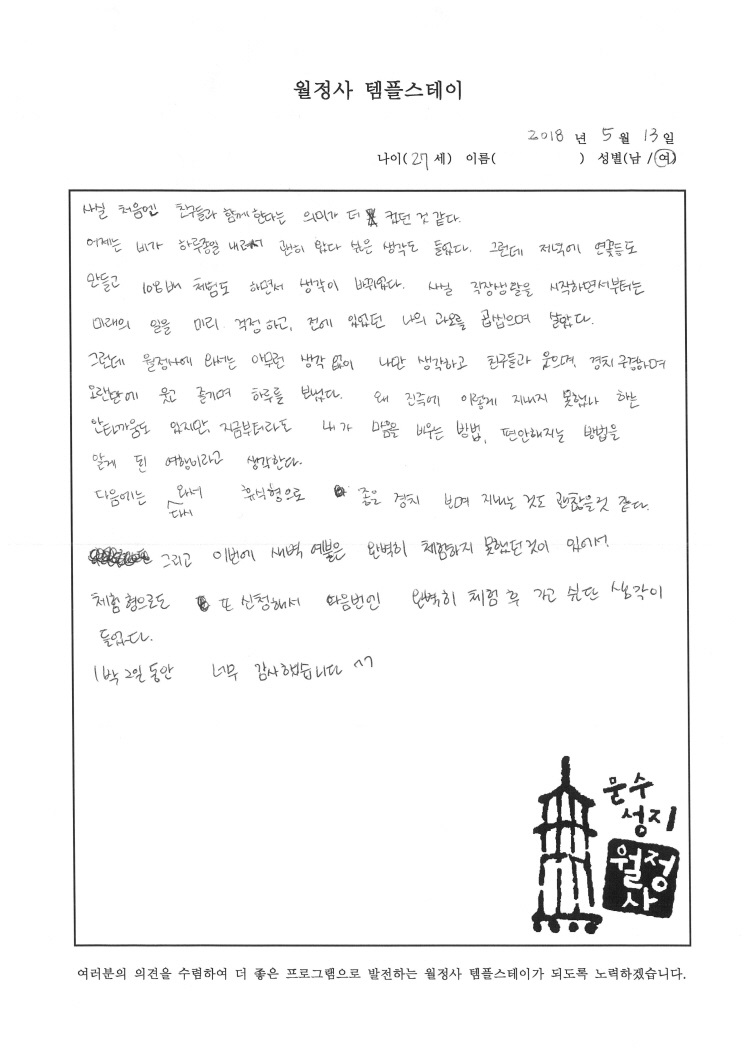 월정사 템플스테이
2018 년 5 월 13 일
나이(27 세) 이름( ) 성별(남 /여)
사실 처음엔 친구들과 함께 한다는 의미가 더 컸던 것 같다.
어제는 비가 하루종일 내려서 괜히 왔다 싶은 생각도 들었다. 그런데 저녁에 연꽃등도
만들고 108배 체험도 하면서 생각이 바뀌었다. 사실 직장생활을 시작하면서부터는
미래의 일을 미리 걱정하고, 전에 있었던 나의 과오를 곱씹으며 살았다.
그런데 월정사에 와서는 아무런 생각 없이 나만 생각하고 친구들과 웃으며, 경치 구경하며
오랜만에 웃고 즐기며 하루를 보냈다. 왜 진즉에 이렇게 지내지 못했나 하는
안타까움도 있지만, 지금부터라도 내가 마음을 비우는 방법, 편안해지는 방법을
알게 된 여행이라고 생각한다.
다음에는 다시 와서 휴식형으로 좋은 경치 보며 지내는 것도 괜찮을것 같다.
그리고 이번에 새벽 예불은 완벽히 체험하지 못했던 것이 있어서.
체험형으로도 또 신청해서 다음번엔 완벽히 체험 후 가고 싶단 생각이
들었다.
1박 2일 동안 너무 감사했습니다 ^^
문수
성지
월정
사
여러분의 의견을 수렴하여 더 좋은 프로그램으로 발전하는 월정사 템플스테이가 되도록 노력하겠습니다.